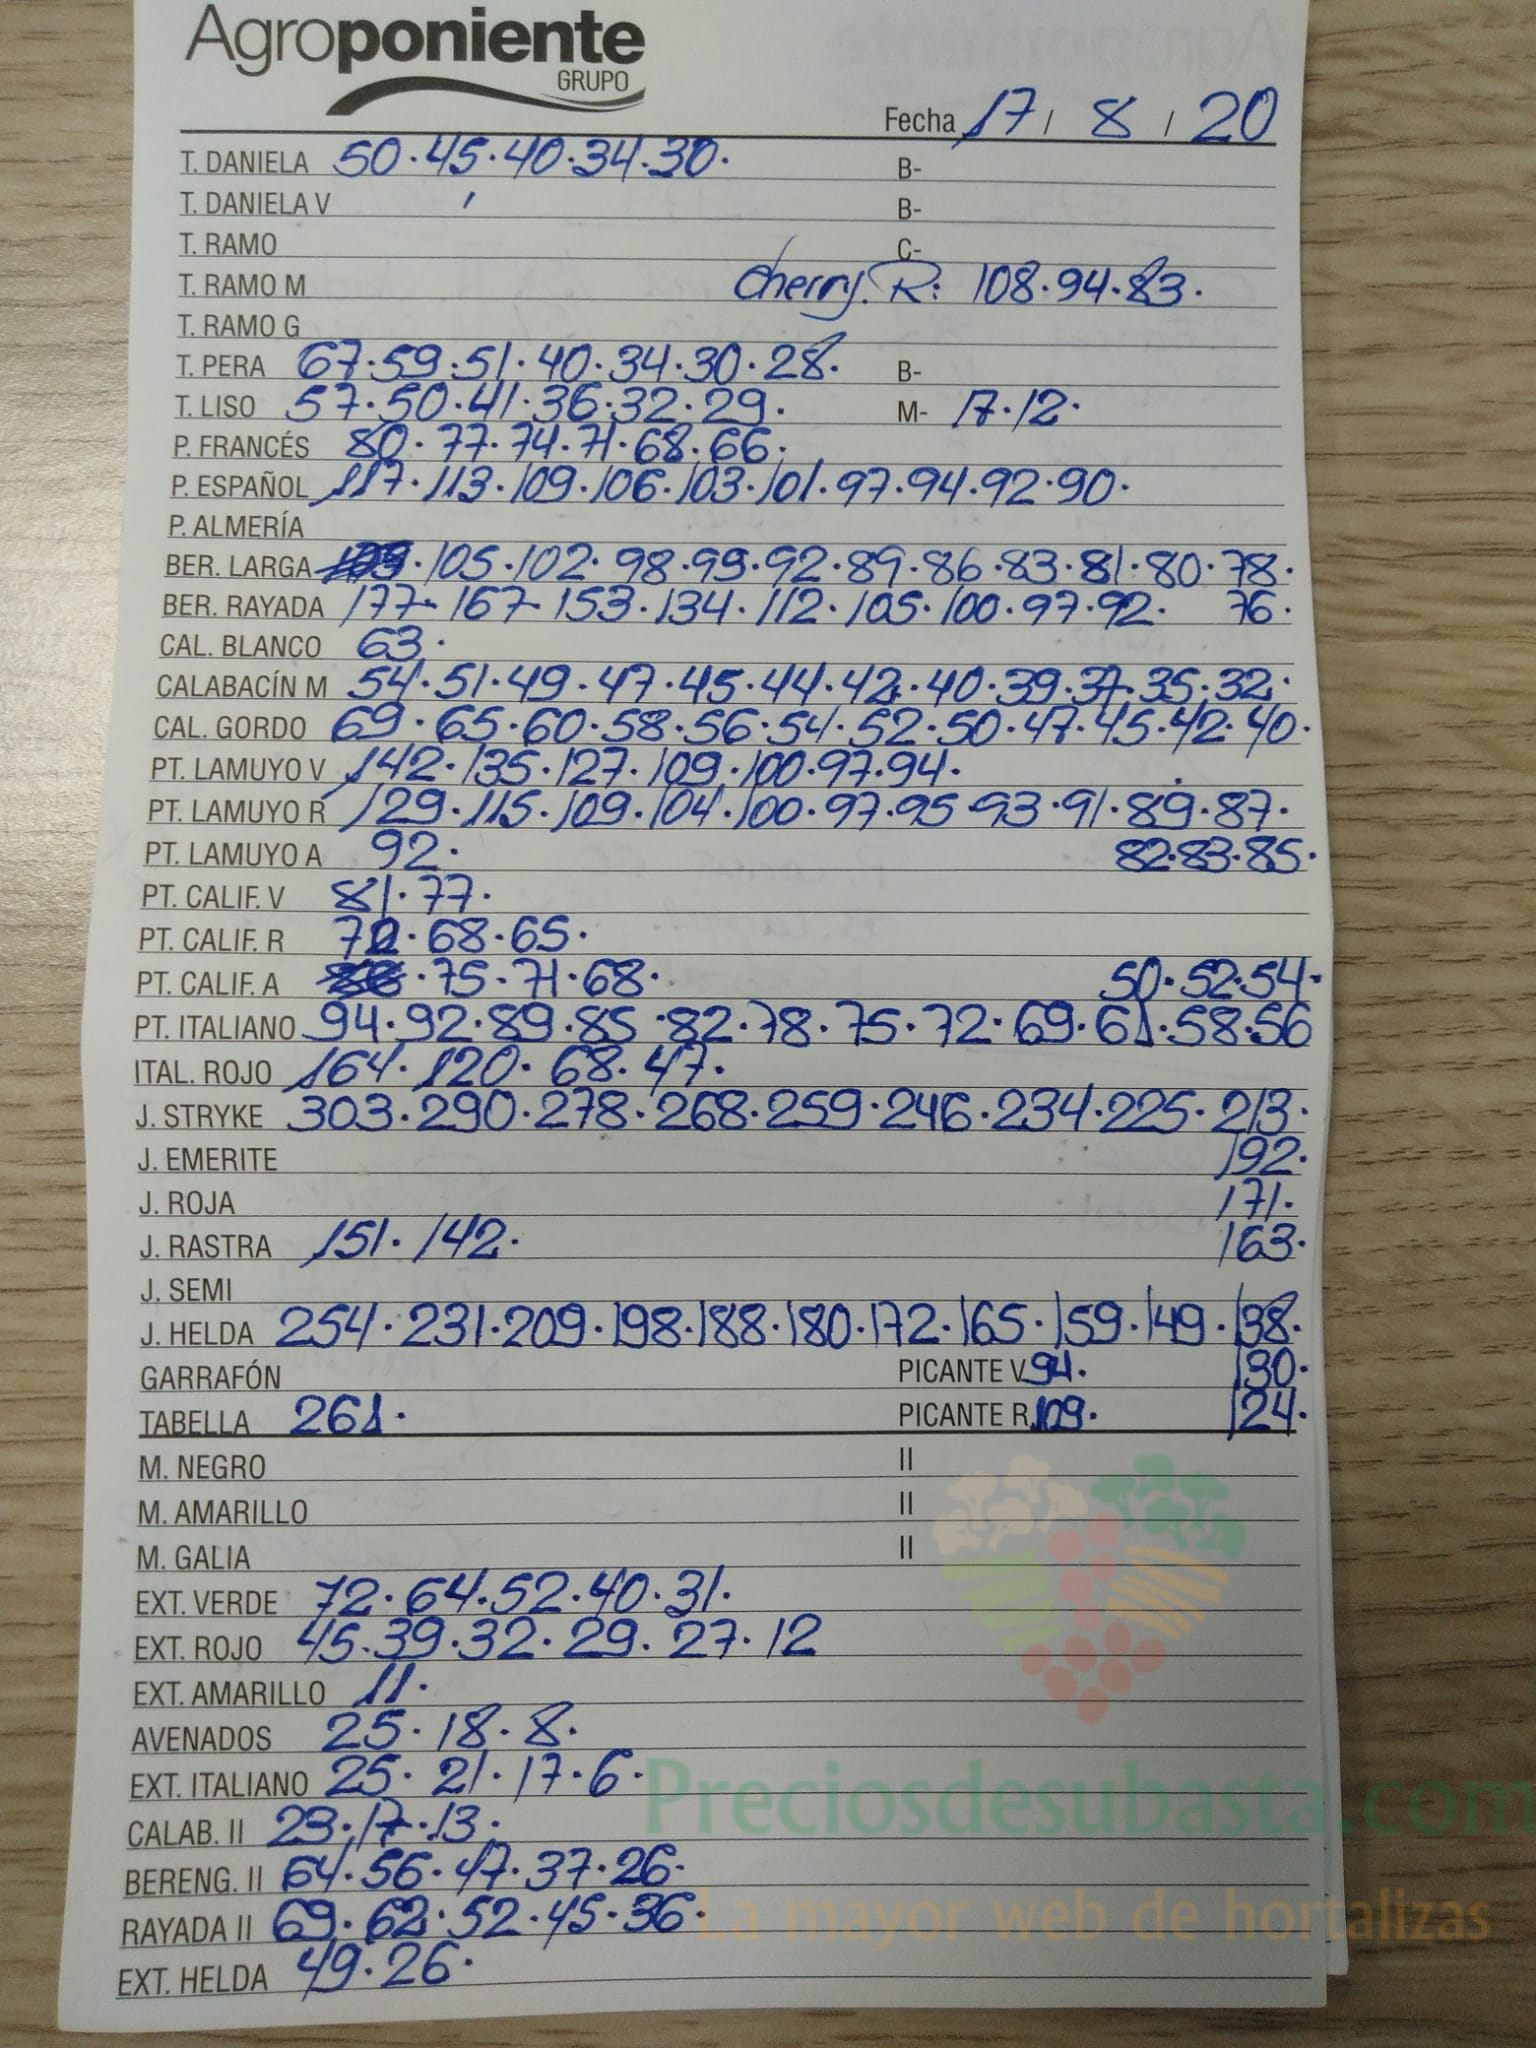 Agroponiente
GRUPO
Fecha 17 / 8 / 20
T. DANIELA 50.45.40.34.30. B-
T. DANIELA V B-
T. RAMO C-
T. RAMO M Cherry. R: 108.94.83.
T. RAMO G
T. PERA 67.59.51.40.34.30.28. B-
T. LISO 57.50.41.36.32.29. M- 17.12.
P. FRANCÉS 80.77.74.71.68.66.
P. ESPAÑOL 117.113.109.106.103.101.97.94.92.90.
P. ALMERÍA
BER. LARGA .105.102.98.95.92.89.86.83.81.80.78.
BER. RAYADA 177.167.153.134.112.105.100.97.92. 76.
CAL. BLANCO 63.
CALABACÍN M 54.51.49.47.45.44.42.40.39.37.35.32.
CAL. GORDO 69.65.60.58.56.54.52.50.47.45.42.40.
PT. LAMUYO V 142.135.127.109.100.97.94.
PT. LAMUYO R 129.115.109.104.100.97.95.93.91.89.87.
PT. LAMUYO A 92. 82.83.85.
PT. CALIF. V 81.77.
PT. CALIF. R 72.68.65.
PT. CALIF. A .75.71.68. 50.52.54.
PT. ITALIANO 94.92.89.85.82.78.75.72.69.61.58.56
ITAL. ROJO 164.120.68.47.
J. STRYKE 303.290.278.268.259.246.234.225.213.
J. EMERITE 192.
J. ROJA 171.
J. RASTRA 151.142. 163.
J. SEMI
J. HELDA 254.231.209.198.188.180.172.165.159.149.138.
GARRAFÓN PICANTE V 94. 130.
TABELLA 261. PICANTE R 109. 124.
M. NEGRO II
M. AMARILLO II
M. GALIA II
EXT. VERDE 72.64.52.40.31.
EXT. ROJO 45.39.32.29.27.12
EXT. AMARILLO 11.
AVENADOS 25.18.8.
EXT. ITALIANO 25.21.17.6.
Preciosdesubasta.com
CALAB. II 23.17.13.
BERENG. II 64.56.47.37.26.
La mayor web de hortalizas
RAYADA II 69.62.52.45.36.
EXT. HELDA 49.26.